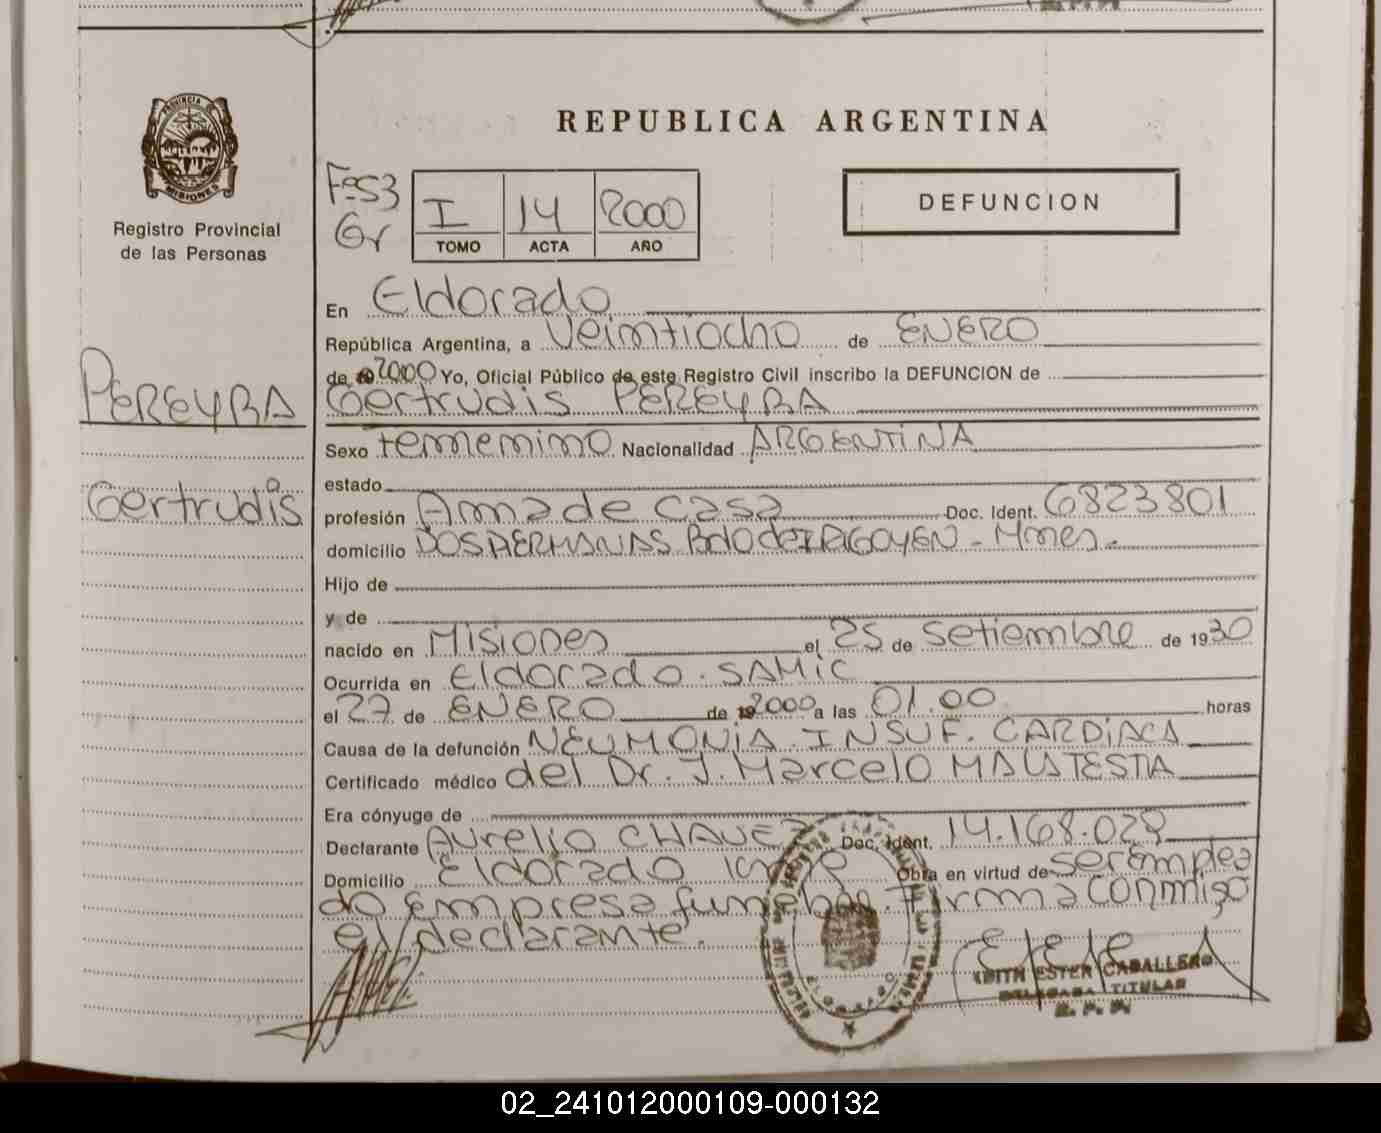 PROVINCIA DE
MISIONES
Registro Provincial
de las Personas
PEREYRA
Gertrudis
REPUBLICA ARGENTINA
Fº53
Gr
I 14 2000
TOMO ACTA AÑO
DEFUNCION
En Eldorado
República Argentina, a Veintiocho de ENERO
de 2000 Yo, Oficial Público de este Registro Civil inscribo la DEFUNCION de
Gertrudis PEREYRA
Sexo femenino Nacionalidad ARGENTINA
estado
profesión Ama de casa Doc. Ident. 6823801
domicilio DOS HERMANAS Bdo de IRIGOYEN - Mnes.
Hijo de
y de
nacido en Misiones el 25 de Setiembre de 1930
Ocurrida en Eldorado. SAMIC
el 27 de ENERO de 2000 a las 01.00 horas
Causa de la defunción NEUMONIA. INSUF. CARDIACA
Certificado médico del Dr. J. Marcelo MALATESTIA
Era cónyuge de
Declarante Aurelio CHAVEZ Doc. Ident. 14.168.028
Domicilio Eldorado Obra en virtud de ser emplea
do empresa funebre. Firma conmigo
el declarante.
ELDORADO
EDITH ESTER CABALLERO
DELEGADA TITULAR
R. P. P.
02_241012000109-000132